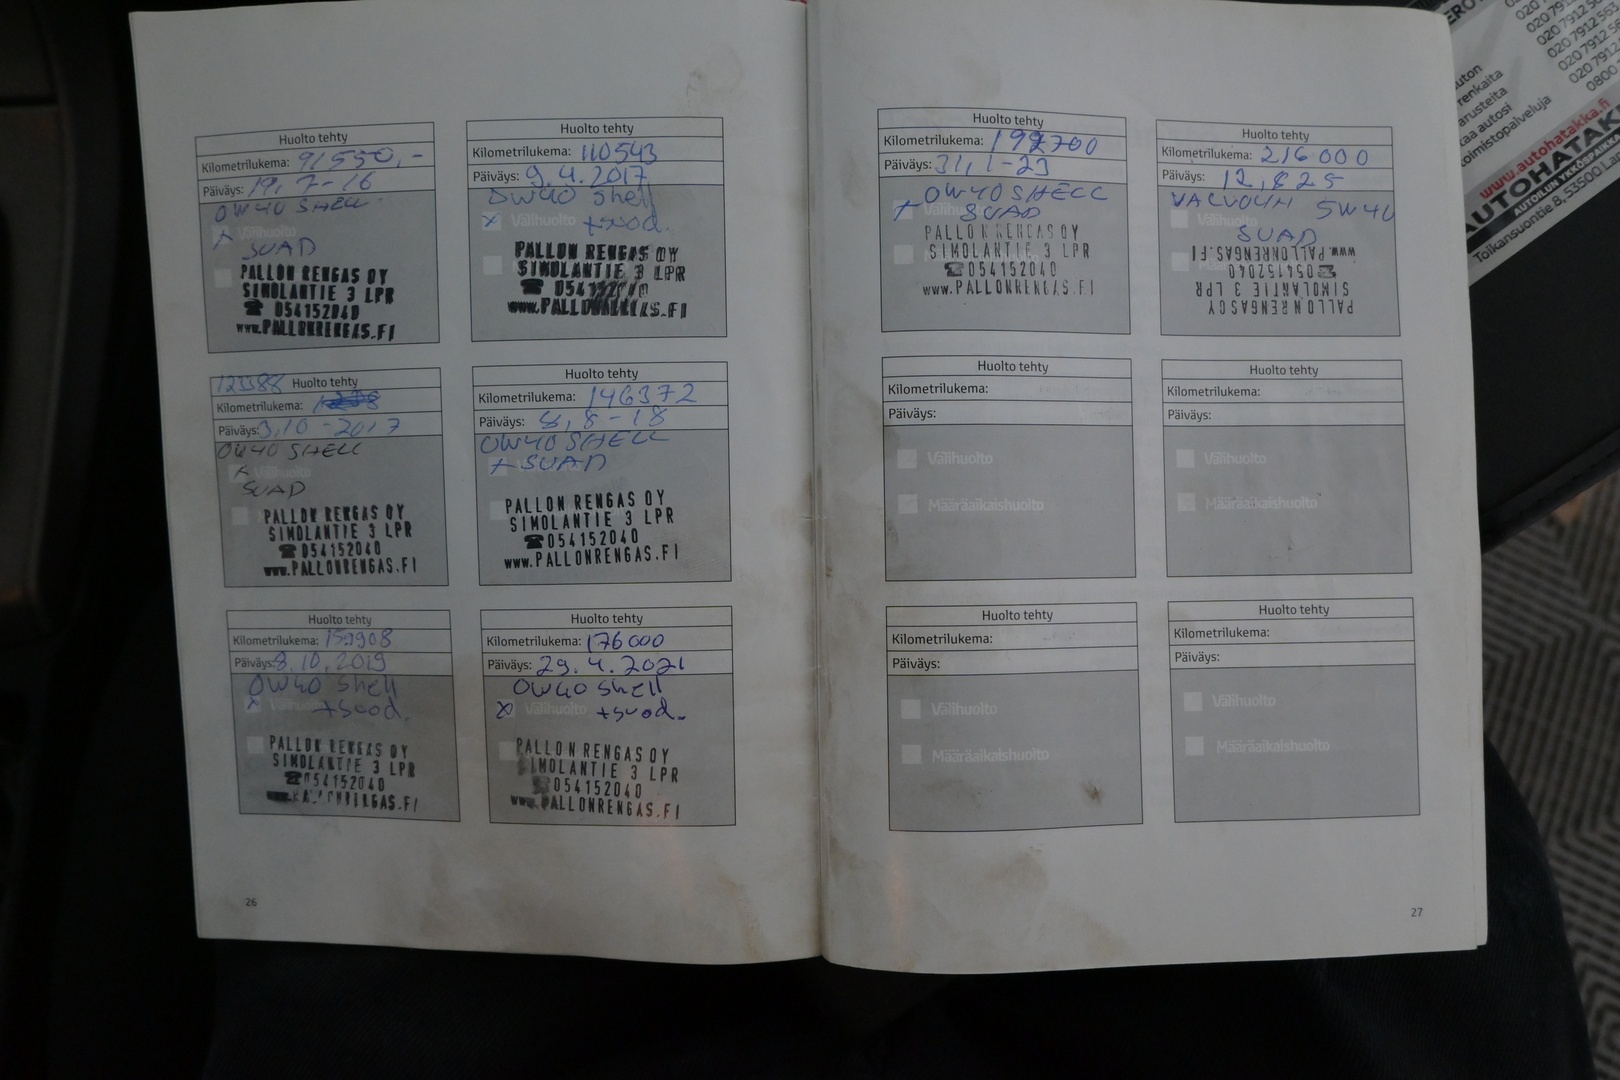 Huolto tehty
Kilometrilukema: 91550,-
Päiväys: 19, 7-16
0W40 SHELL
X Välihuolto
SUAD
PALLON RENGAS OY
SIMOLANTIE 3 LPR
☎ 054152040
www.PALLONRENGAS.FI
Huolto tehty
Kilometrilukema: 110543
Päiväys: 9.4.2017
0W40 Shell
X Välihuolto +suod.
PALLON RENGAS OY
SIMOLANTIE 3 LPR
☎ 054152040
www.PALLONRENGAS.FI
123388 Huolto tehty
Kilometrilukema:
Päiväys: 3,10-2017
0W40 SHELL
X Välihuolto
SUAD
PALLON RENGAS OY
SIMOLANTIE 3 LPR
☎ 054152040
www.PALLONRENGAS.FI
Huolto tehty
Kilometrilukema: 146372
Päiväys: 8,8-18
0W40 SHELL
+ SUAD
PALLON RENGAS OY
SIMOLANTIE 3 LPR
☎ 054152040
www.PALLONRENGAS.FI
Huolto tehty
Kilometrilukema: 159908
Päiväys: 8.10.2019
0W40 Shell
X Välihuolto +suod.
PALLON RENGAS OY
SIMOLANTIE 3 LPR
☎ 054152040
www.PALLONRENGAS.FI
Huolto tehty
Kilometrilukema: 176000
Päiväys: 29.4.2021
0W40 Shell
X Välihuolto +suod.
PALLON RENGAS OY
SIMOLANTIE 3 LPR
☎ 054152040
www.PALLONRENGAS.FI
26
Huolto tehty
Kilometrilukema:
Päiväys: 31,1-23
0W40 SHELL
+ SUAD
PALLON RENGAS OY
SIMOLANTIE 3 LPR
☎ 054152040
www.PALLONRENGAS.FI
Huolto tehty
Kilometrilukema: 216000
Päiväys: 12,825
5W40
SUAD
PALLON RENGAS OY
SIMOLANTIE 3 LPR
☎ 054152040
www.PALLONRENGAS.FI
Huolto tehty
Kilometrilukema:
Päiväys:
Välihuolto
Määräaikaishuolto
Huolto tehty
Kilometrilukema:
Päiväys:
Välihuolto
Määräaikaishuolto
Huolto tehty
Kilometrilukema:
Päiväys:
Välihuolto
Määräaikaishuolto
Huolto tehty
Kilometrilukema:
Päiväys:
Välihuolto
Määräaikaishuolto
27
www.autohatakka.fi
Toikansuontie 8, 53500